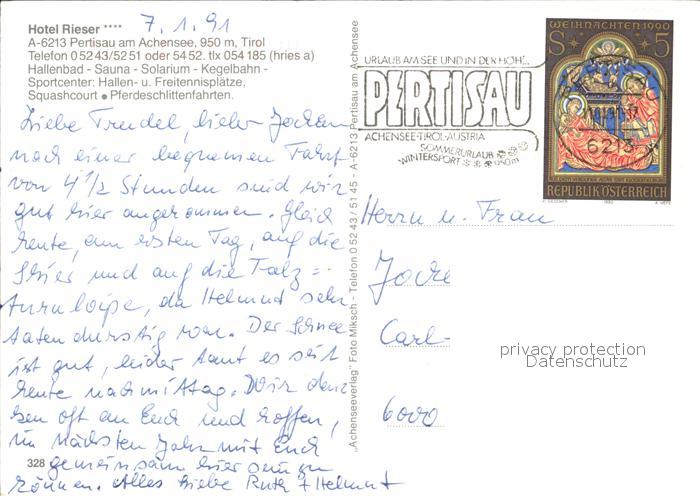 Hotel Rieser ****
7.1.91
A-6213 Pertisau am Achensee, 950 m, Tirol
Telefon 0 52 43/52 51 oder 54 52. tlx 054 185 (hries a)
Hallenbad - Sauna - Solarium - Kegelbahn -
Sportcenter: Hallen- u. Freitennisplätze,
Squashcourt ● Pferdeschlittenfahrten.
Liebe Trudel, lieber Jochen
nach einer bequemen Fahrt
von 4 1/2 Stunden sind wir
gut hier angekommen. Gleich
heute, am ersten Tag, auf die
Skier und auf die
loipe, da Helmut sehr
tatendurstig war. Der Schnee
ist gut, leider taut es seit
heute nachmittag. Wir denken
oft an Euch und hoffen,
im nächsten Jahr mit Euch
328 gemeinsam hier sein zu
können. Alles Liebe Ruth + Helmut
„Achenseeverlag" Foto Miksch - Telefon 0 52 43 / 51 45 - A-6213 Pertisau am Achensee
URLAUB AM SEE UND IN DER HÖH'...
PERTISAU
ACHENSEE-TIROL-AUSTRIA
SOMMERURLAUB
WINTERSPORT 950m
WEIHNACHTEN 1990
S 5
6213
REPUBLIK ÖSTERREICH
1990
Herrn u. Frau
Carl-
6000
privacy protection
Datenschutz